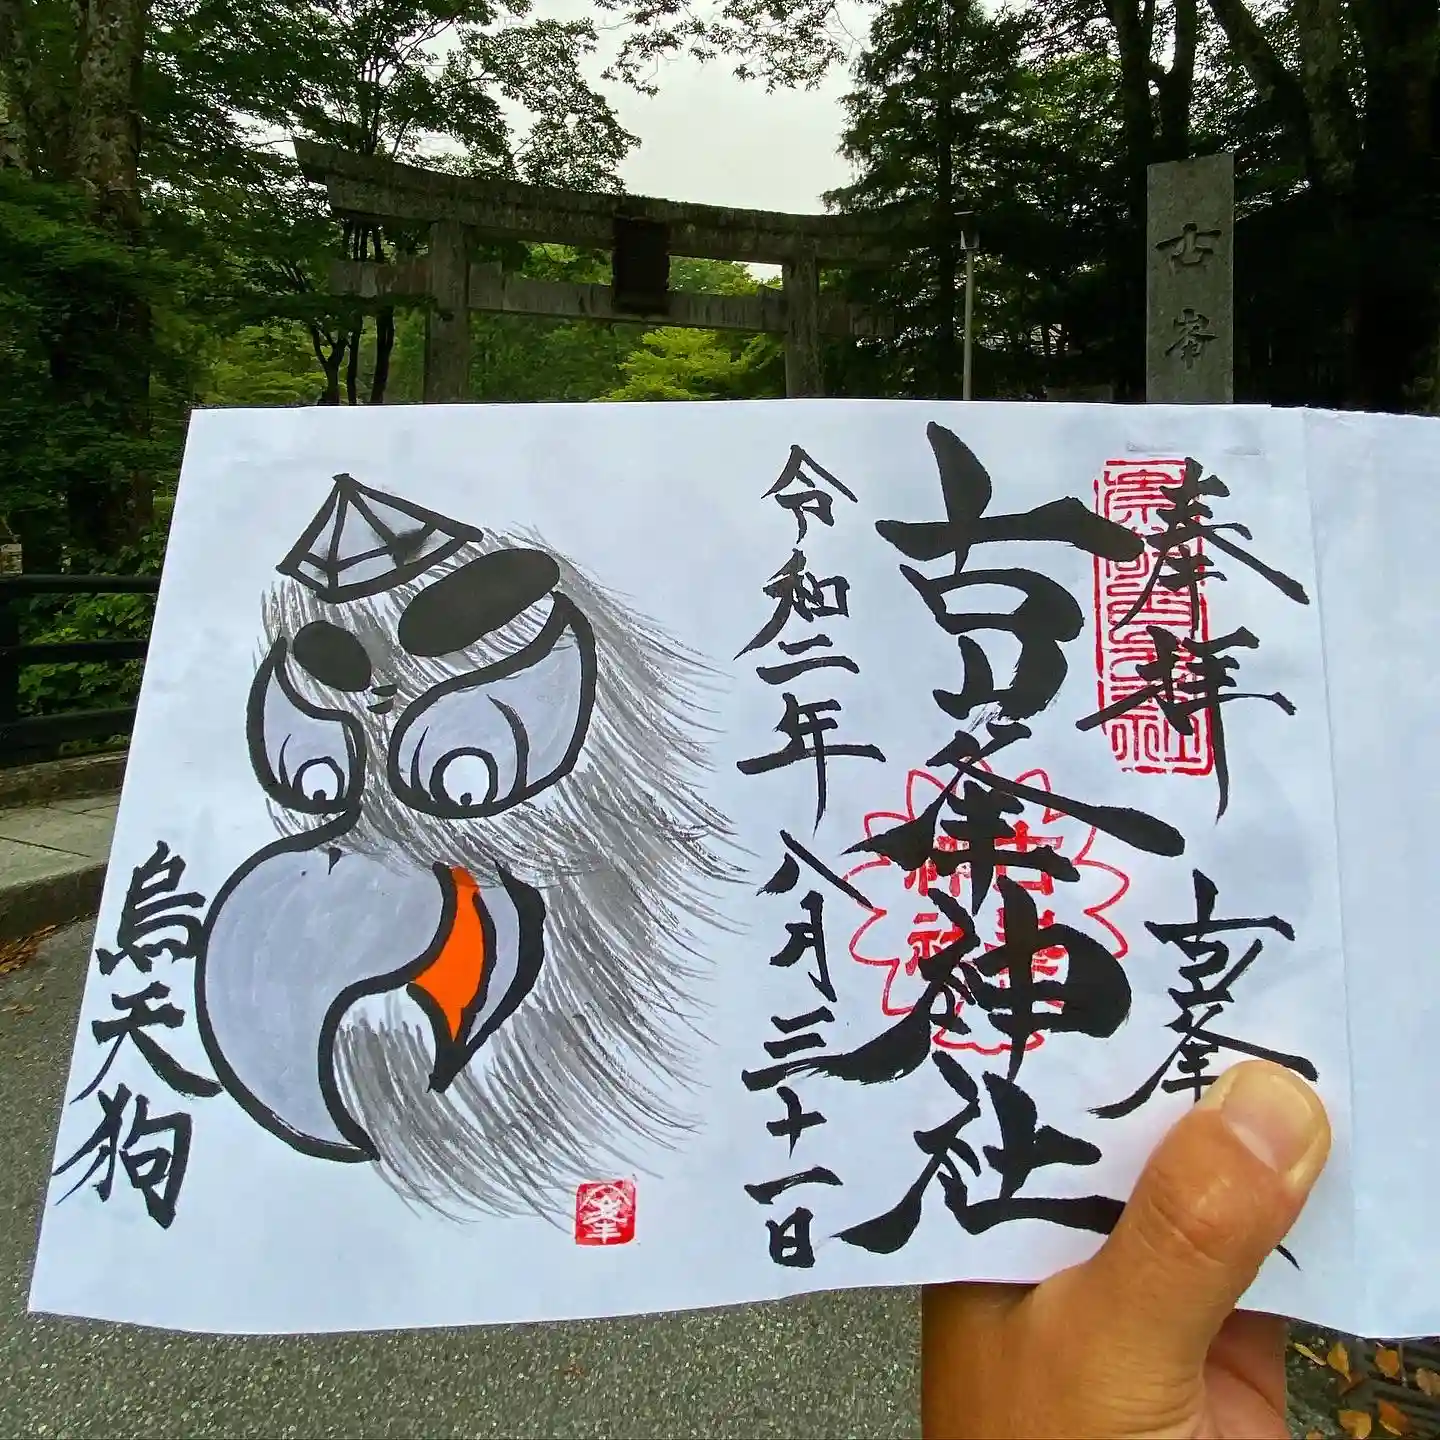 古峯
奉拝
古峯
古峯神社
古峯
神社
令和二年八月三十一日
烏天狗